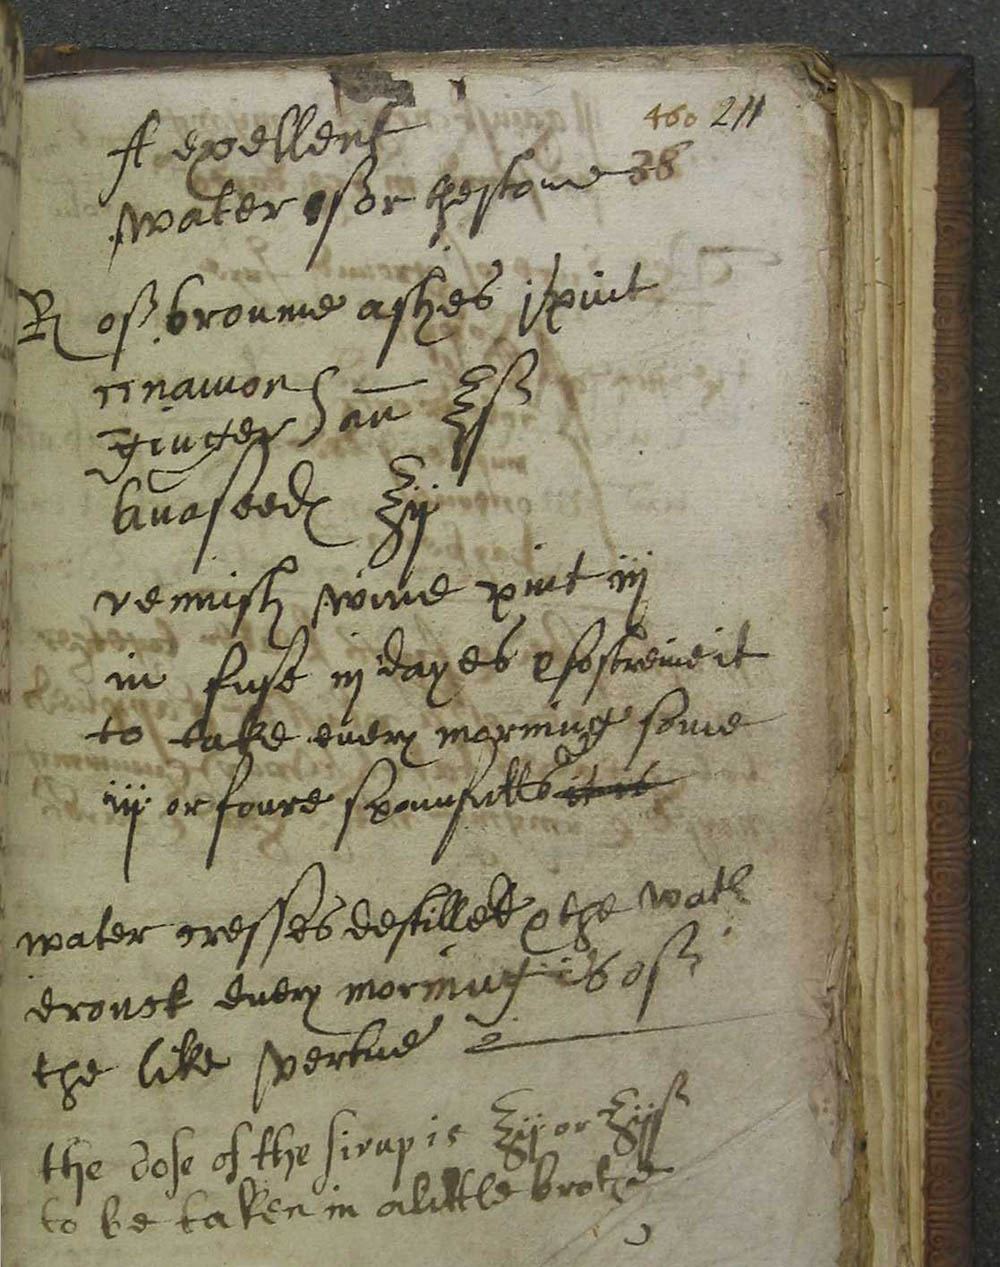 460 211
A exellent
water ffor the stone 38
R off broume ashes j pint
cinamon
ginger } an ʒss
anaseeds ʒij
rennish wine pint iij
in fuse iij dayes & so streine it
to take every morning some
iij or foure spounfulls it is
water cresses destilled & the watr
dronck every morning is off
the like vertue
the dose of the sirup is ʒij or ʒijss
to be taken in a little brothe